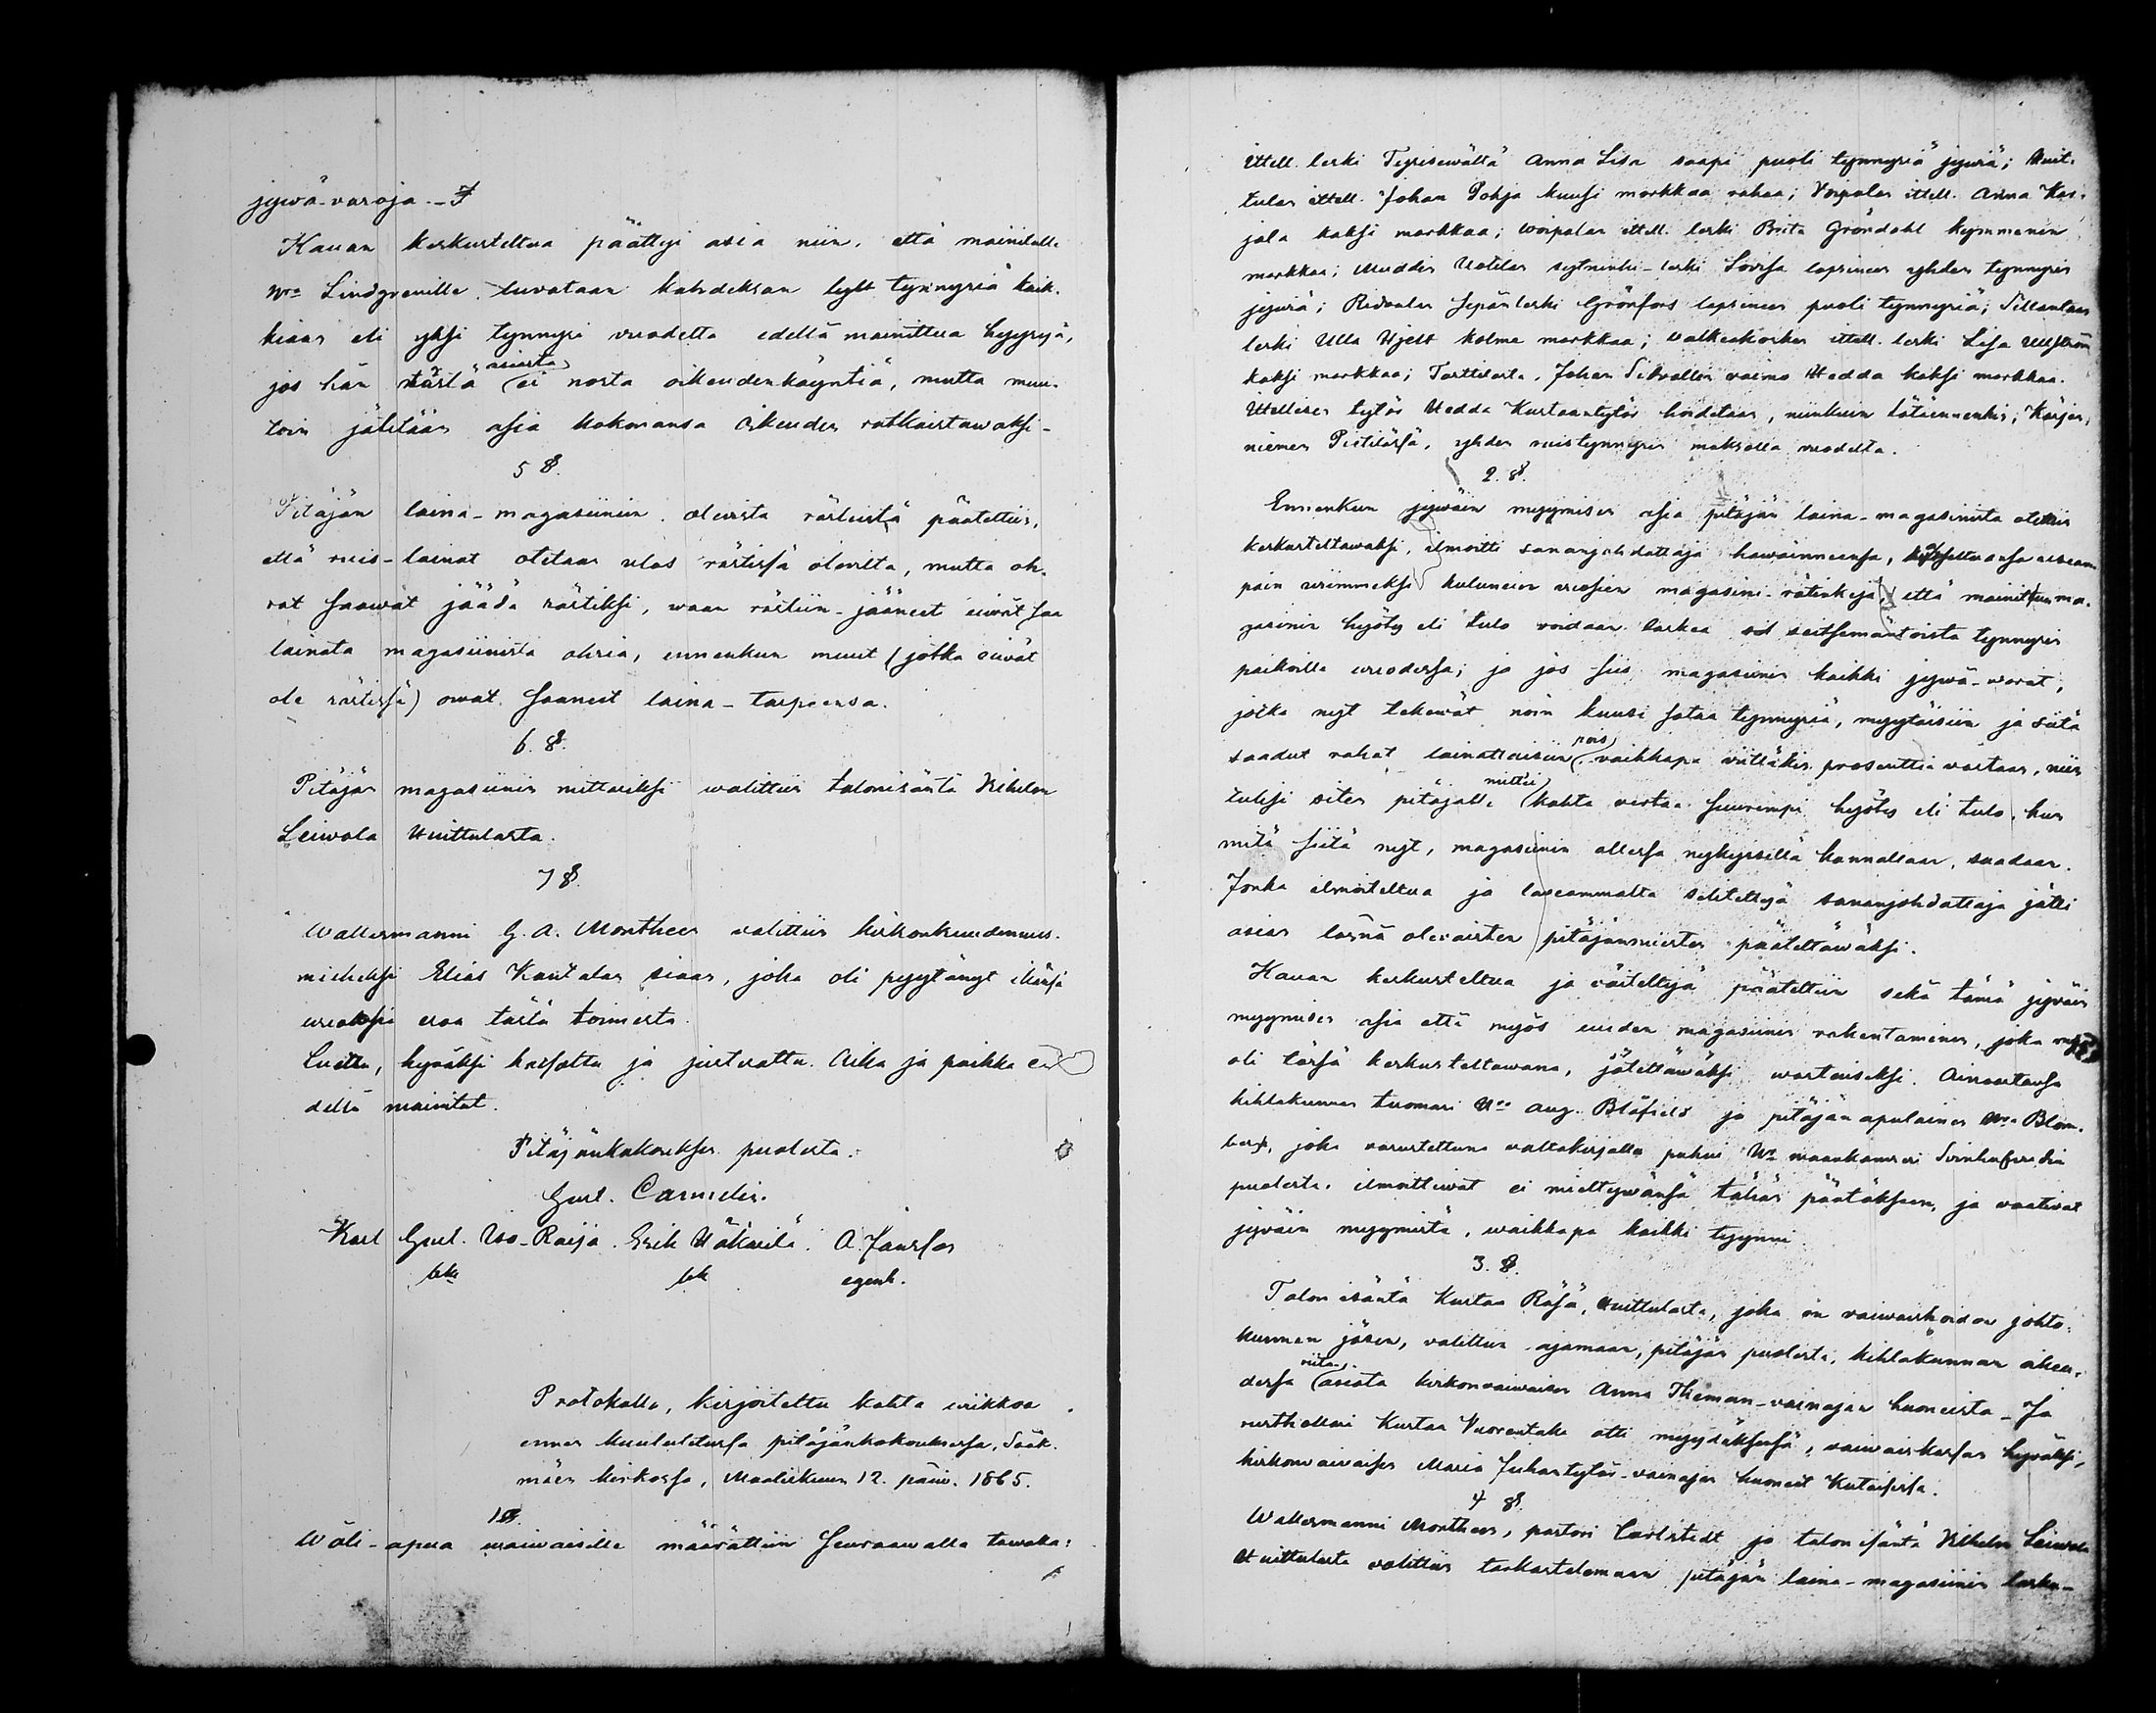 jywä-varoja. -
Kauan keskusteltua päättyi asia niin, että mainitulle
Wra Lindgrenille luvataan kahdeksan kylt. tynnyriä kaik-
kiaan eli yksi tynnyri vuodelta edellä mainittua hyyryä,
jos hän tästä asiasta ei nosta oikeudenkäyntiä, mutta muu-
toin jätetään asia kokonansa Oikeuden ratkaistawaksi -
5 §.
Pitäjän laina-magasiiniin olevista rästeistä päätettiin,
että ruis-lainat otetaan ulos rästissä olevilta, mutta oh-
rat saawat jäädä rästiksi, waan rästiin-jääneet eiwät saa
lainata magasiinista ohria, ennenkun muut (jotka eiwät
ole rästissä) owat saaneet laina-tarpeensa.
6. §.
Pitäjän magasiinin mittariksi walittiin talonisäntä Vilhelm
Leiwola Huittulasta.
7 §.
Wallesmanni G. A. Montheen valittiin kirkonkuudennus-
mieheksi Elias Kautalan siaan, joka oli pyytänyt ikänsä
wuoksi eroa tästä toimesta.
Luettu, hywäksi katsottu ja justeerattu. Aika ja paikka e-
dellä mainitut.
Pitäjänkokouksen puolesta.
Gust. Carnelin.
Karl Gust. Uso-Raija. Erik Häkäilä. A. Janssas
bk bk egenh.
Protokolla, kirjoitettu kahta wiikkoa
ennen kuulutetussa pitäjänkokouksessa, Sääks-
mäen kirkossa, Maaliskuun 12. päiw. 1865.
1 §.
Wäli-apua waiwaisille määrättiin seuraawalla tawalla:
ittell. leski Tyrisewältä Anna Lisa saapi puoli tynnyriä jywiä; Huit-
tulan ittell. Johan Pohja kuusi markkaa rahaa; Voipalan ittell. Anna Kas-
jala kaksi markkaa; Woipalan ittell. leski Brita Gröndahl kymmenen
markkaa; Uotilan leski Lovisa lapsineen yhden tynnyrin
jywiä; Ridvalan sepän leski Grönfors lapsineen puoli tynnyriä;
leski Ulla Hjelt kolme markkaa; Walkeakosken ittell. leski Lisa Ullström
kaksi markkaa; Tarttilasta, Johan Silvallin vaimo Hedda kaksi markkaa.
Ittellisen tytön Hedda Kustaantytön hoidetaan, niinkuin tätäennenkin, Karjas-
niemen Pistilässä, yhden ruistynnyrin maksolla vuodelta.
2. §.
Ennenkun jywäin myymisen asia pitäjän laina-magasinista otettiin
keskusteltawaksi, ilmoitti sananjohdattaja hawainneensa, katseltuansa useam-
pain viimmeksi kuluneien wuosien magasini-rätinkejä, että mainitun ma-
gasinin hyöty eli tulo voidaan laskea seitsemäntoista tynnyrin
paikoilla wuodessa; ja jos siis magasiinin kaikki jywä-warat,
jotka nyt tekewät noin kuusi sataa tynnyriä, myytäisiin ja siitä
saadut rahat lainattaisiin pois vaikkapa viittäkin prosenttia vastaan, niin
tulisi siten pitäjälle kahta vertaa suurempi hyöty eli tulo, kun
mitä siitä nyt, magasiinin ollessa nykyisellä kannallaan, saadaan.
Jonka ilmoitettua ja laveammalta selitettyä sananjohdattaja jätti
asian läsnä olevaisten pitäjänmiesten päätettäwäksi.
Kauan keskusteltua ja väiteltyä päätettiin sekä tämä jywäin
myymisen asia että myös uuden magasiinin rakentaminen, joka
oli tässä keskusteltawana, jätettäwäksi wastaiseksi. Ainoastansa
kihlakunnan tuomari Hra Aug. Blåfield ja pitäjän apulainen Hra Blom-
berg, joka varustettuna valtakirjalla puhui Hra maakamreri Svinhufvudin
puolesta, ilmoittiwat ei mieltywänsä tähän päätökseen, ja vaatiwat
jywäin myymistä, waikkapa kaikki tyynni.
3. §.
Talon isäntä Kustaa Räsä, Huittulasta, joka on vaivaishoidon johto-
kunnan jäsen, valittiin ajamaan, pitäjän puolesta, kihlakunnan oikeu-
dessa riita asiata kirkonvaiwaisen Anna Theman-vainajan huoneista - Ja
rusthollari Kustaa Vuorentaka otti myydäksensä, vaiwaiskassan hywäksi,
kirkonvaiwaisen Maria Juhantytön-vainajan huoneet Kutaisissa.
4 §.
Wallesmanni Montheen, pastori Carlstedt ja talonisäntä Vilhelm Leiwola
Huittulasta valittiin tarkastelemaan pitäjän laina-magasiinin laske-